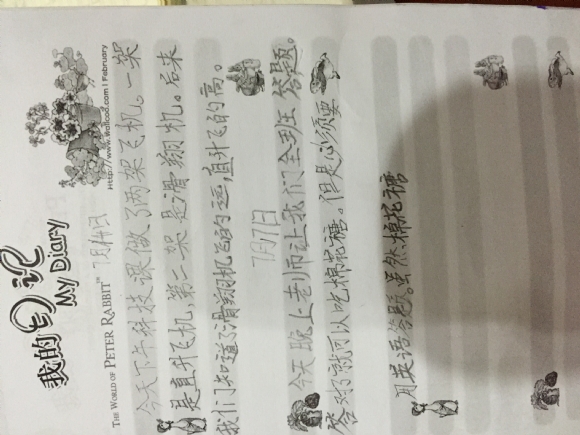 我的日记
My Diary
THE WORLD OF PETER RABBIT
Http://www.Wollcoo.com | February
7月14日
今天下午科技课做了两架飞机。一架
是直升飞机,第二架是滑翔机。后来
我们知道了滑翔机飞的远,直升飞的高。
7月17日
今天晚上老师让我们全班答题。
答对了就可以吃棉花糖。但是必须要
用英语答题。虽然棉花糖